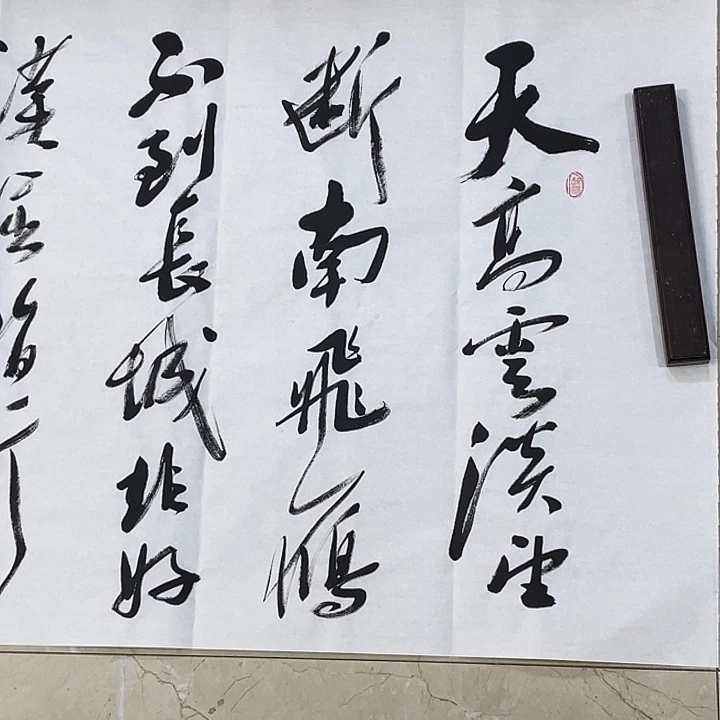 天高雲淡望
斷南飛鴈
不到長城非好
漢屈指行